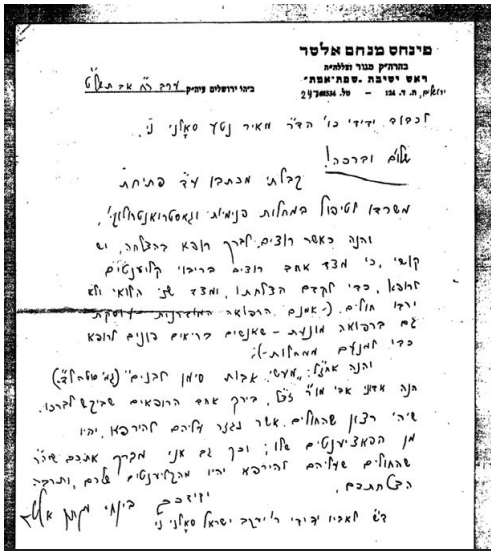 פינחס מנחם אלטר
בהרה״ק מגור זצללה״ה
ראש ישיבת ״שפת־אמת״
ירושלים, ת. ד. 124 – טל.
ביהו ירושלים עיה״ק ערב ר״ח אב תשל״ט
לכבוד ידידי כו׳ הד״ר מאיר נטע סאלני ני׳
שלום וברכה!
קבלתי מכתבו ע״ד פתיחת
משרדו לטיפול במחלות פנימית וגאסטרואנטרולוגי׳,
והנה כאשר רוצים לברך רופא בהצלחה, יש
קושי, כי מצד אחד רוצים בריבוי קליענטים
לרופא, כדי לקדם הצלחתו, ומצד שני הלואי ולא
ירבו חולים. (־אמנם הרפואה המודרנית עוסקת
גם ברפואה מונעת – שאנשים בריאים פונים לרופא
כדי למנעם ממחלות־).
והנה אחז״ל ״מעשי אבות סימן לבנים״
הנה אדוני אבי מו״ר זצ״ל, בירך אחד הרופאים שביקש לברכו,
שיהי׳ רצון שהחולים אשר נגזר עליהם להירפא, יהיו
מן הפאציענטים שלו; וכך גם אני מברך אתכם שיה״ר
שהחולים שעליהם להירפא יהיו מהקליענטים שלכם, ותרבה
הצלחתכם.
ידידכם פינחס מנחם אלטר
ד״ש לאביו ידידי ר׳ יעקב ישראל סאלני ני׳